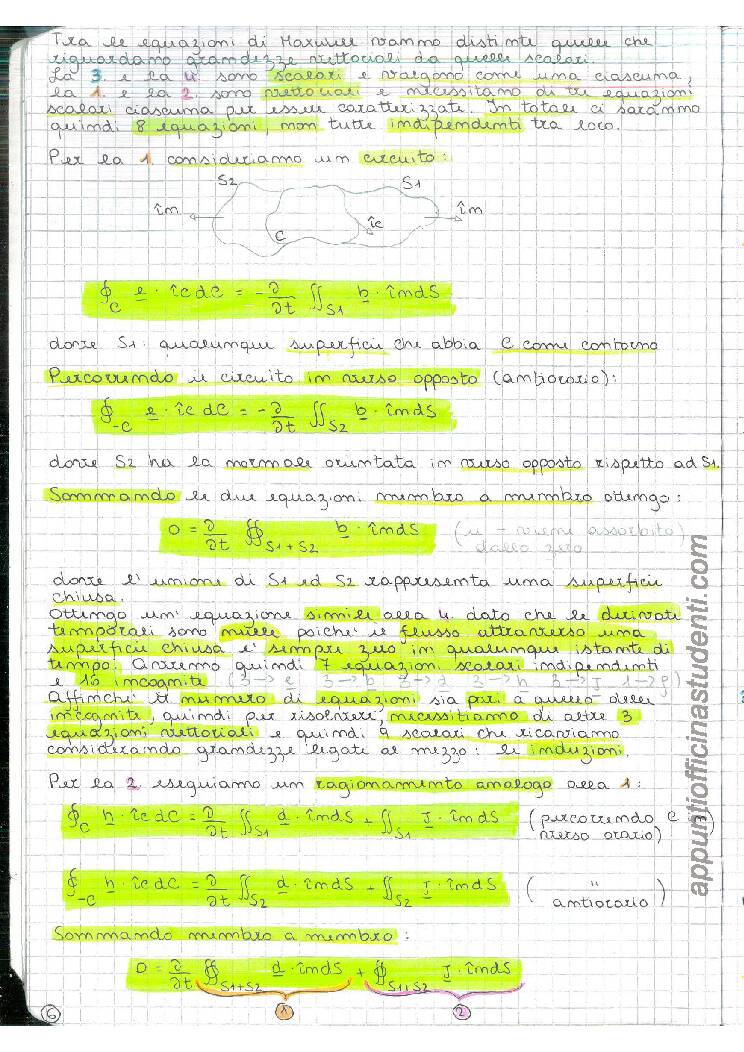 Tra le equazioni di Maxwell vanno distinte quelle che
riguardano grandezze vettoriali da quelle scalari.
La 3. e la 4. sono scalari e valgono come una ciascuna,
la 1. e la 2. sono vettoriali e necessitano di tre equazioni
scalari ciascuna per essere caratterizzate. In totale ci saranno
quindi 8 equazioni, non tutte indipendenti tra loro.
Per la 1. consideriamo un circuito:
S2 S1
în îc în
C
∮_C e · îc dC = -∂/∂t ∬_S1 b · în dS
dove S1: qualunque superficie che abbia C come contorno
Percorrendo il circuito in verso opposto (antiorario):
∮_-C e · îc dC = -∂/∂t ∬_S2 b · în dS
dove S2 ha la normale orientata in verso opposto rispetto ad S1.
Sommando le due equazioni membro a membro ottengo:
0 = ∂/∂t ∯_S1+S2 b · în dS (il - viene assorbito
dallo zero)
dove l'unione di S1 ed S2 rappresenta una superficie
chiusa.
Ottengo un'equazione simile alla 4. dato che le derivate
temporali sono nulle poiché il flusso attraverso una
superficie chiusa è sempre zero in qualunque istante di
tempo. Avremo quindi 7 equazioni scalari indipendenti
e 16 incognite (3→e 3→b 3→d 3→h 3→J 1→ρ)
Affinché il numero di equazioni sia pari a quello delle
incognite, quindi per risolvere, necessitiamo di altre 3
equazioni vettoriali e quindi 9 scalari che ricaviamo
considerando grandezze legate al mezzo: le induzioni.
Per la 2. eseguiamo un ragionamento analogo alla 1:
∮_C h · îc dC = ∂/∂t ∬_S1 d · în dS + ∬_S1 J · în dS (percorrendo C in
verso orario)
∮_-C h · îc dC = ∂/∂t ∬_S2 d · în dS + ∬_S2 J · în dS ( "
antiorario)
Sommando membro a membro:
0 = ∂/∂t ∯_S1+S2 d · în dS + ∯_S1+S2 J · în dS
1 2
6
appuntiofficinastudenti.com